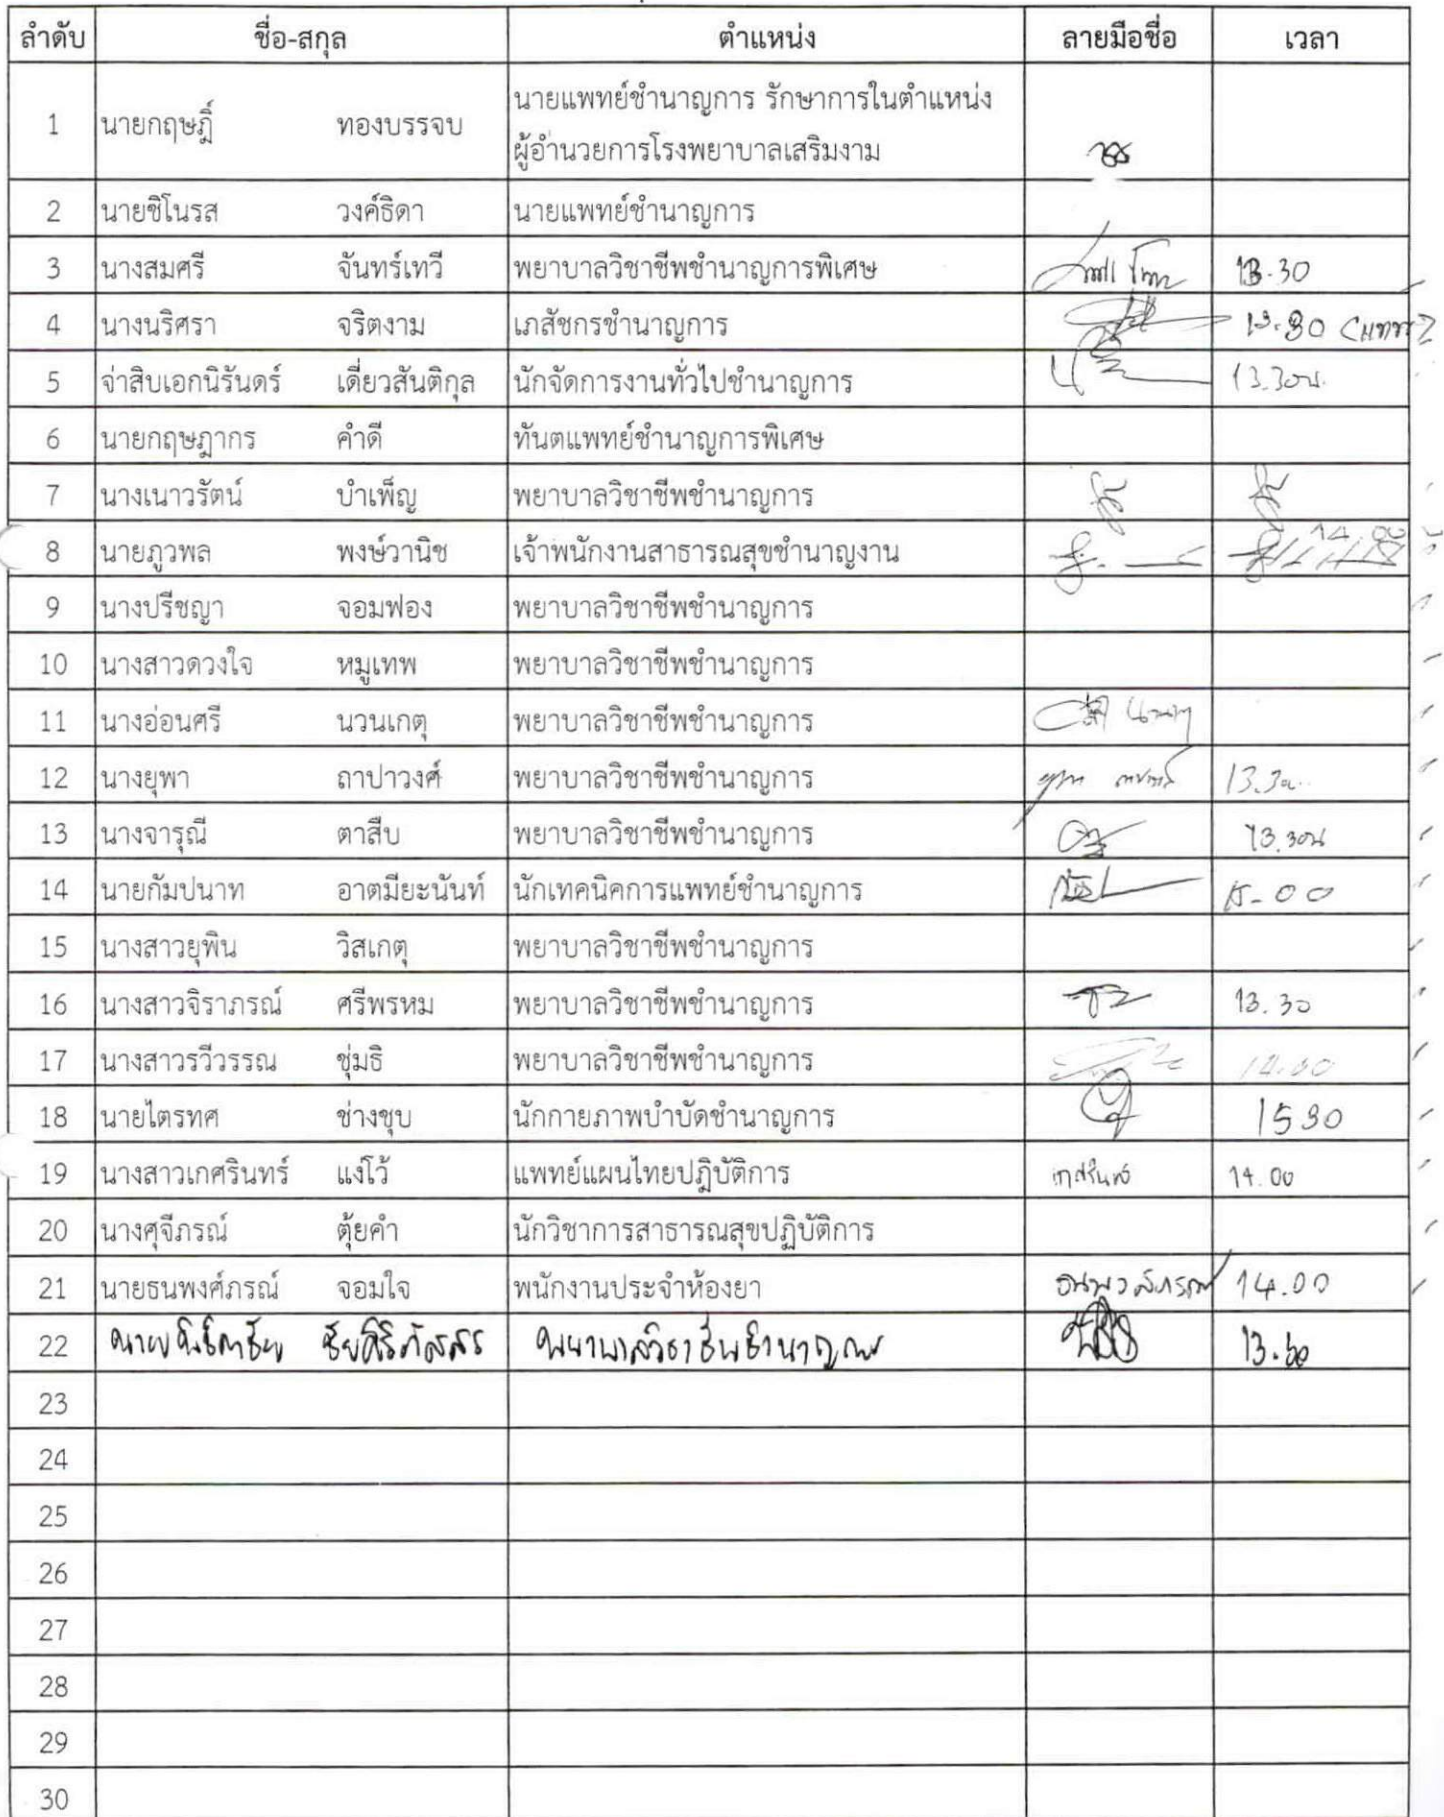 ลำดับ ชื่อ-สกุล ตำแหน่ง ลายมือชื่อ เวลา
1 นายกฤษฎิ์ ทองบรรจบ นายแพทย์ชำนาญการ รักษาการในตำแหน่ง
ผู้อำนวยการโรงพยาบาลเสริมงาม
2 นายชิโนรส วงค์ธิดา นายแพทย์ชำนาญการ
3 นางสมศรี จันทร์เทวี พยาบาลวิชาชีพชำนาญการพิเศษ 13.30
4 นางนริศรา จริตงาม เภสัชกรชำนาญการ 13.30
5 จ่าสิบเอกนิรันดร์ เดี่ยวสันติกุล นักจัดการงานทั่วไปชำนาญการ 13.30น.
6 นายกฤษฎากร คำดี ทันตแพทย์ชำนาญการพิเศษ
7 นางเนาวรัตน์ บำเพ็ญ พยาบาลวิชาชีพชำนาญการ
8 นายภูวพล พงษ์วานิช เจ้าพนักงานสาธารณสุขชำนาญงาน 14.00
9 นางปรีชญา จอมฟอง พยาบาลวิชาชีพชำนาญการ
10 นางสาวดวงใจ หมูเทพ พยาบาลวิชาชีพชำนาญการ
11 นางอ่อนศรี นวนเกตุ พยาบาลวิชาชีพชำนาญการ
12 นางยุพา ถาปาวงศ์ พยาบาลวิชาชีพชำนาญการ 13.30
13 นางจารุณี ตาสืบ พยาบาลวิชาชีพชำนาญการ 13.30น
14 นายกัมปนาท อาตมียะนันท์ นักเทคนิคการแพทย์ชำนาญการ 15-00
15 นางสาวยุพิน วิสเกตุ พยาบาลวิชาชีพชำนาญการ
16 นางสาวจิราภรณ์ ศรีพรหม พยาบาลวิชาชีพชำนาญการ 13.30
17 นางสาวรวีวรรณ ชุ่มธิ พยาบาลวิชาชีพชำนาญการ 14.00
18 นายไตรทศ ช่างชุบ นักกายภาพบำบัดชำนาญการ 1530
19 นางสาวเกศรินทร์ แงโว้ แพทย์แผนไทยปฏิบัติการ เกศรินทร์ 14.00
20 นางศุจีภรณ์ ตุ้ยคำ นักวิชาการสาธารณสุขปฏิบัติการ
21 นายธนพงศ์ภรณ์ จอมใจ พนักงานประจำห้องยา ธนพงศ์ภรณ์ 14.00
22 นาย พยาบาลวิชาชีพชำนาญการ
23
24
25
26
27
28
29
30